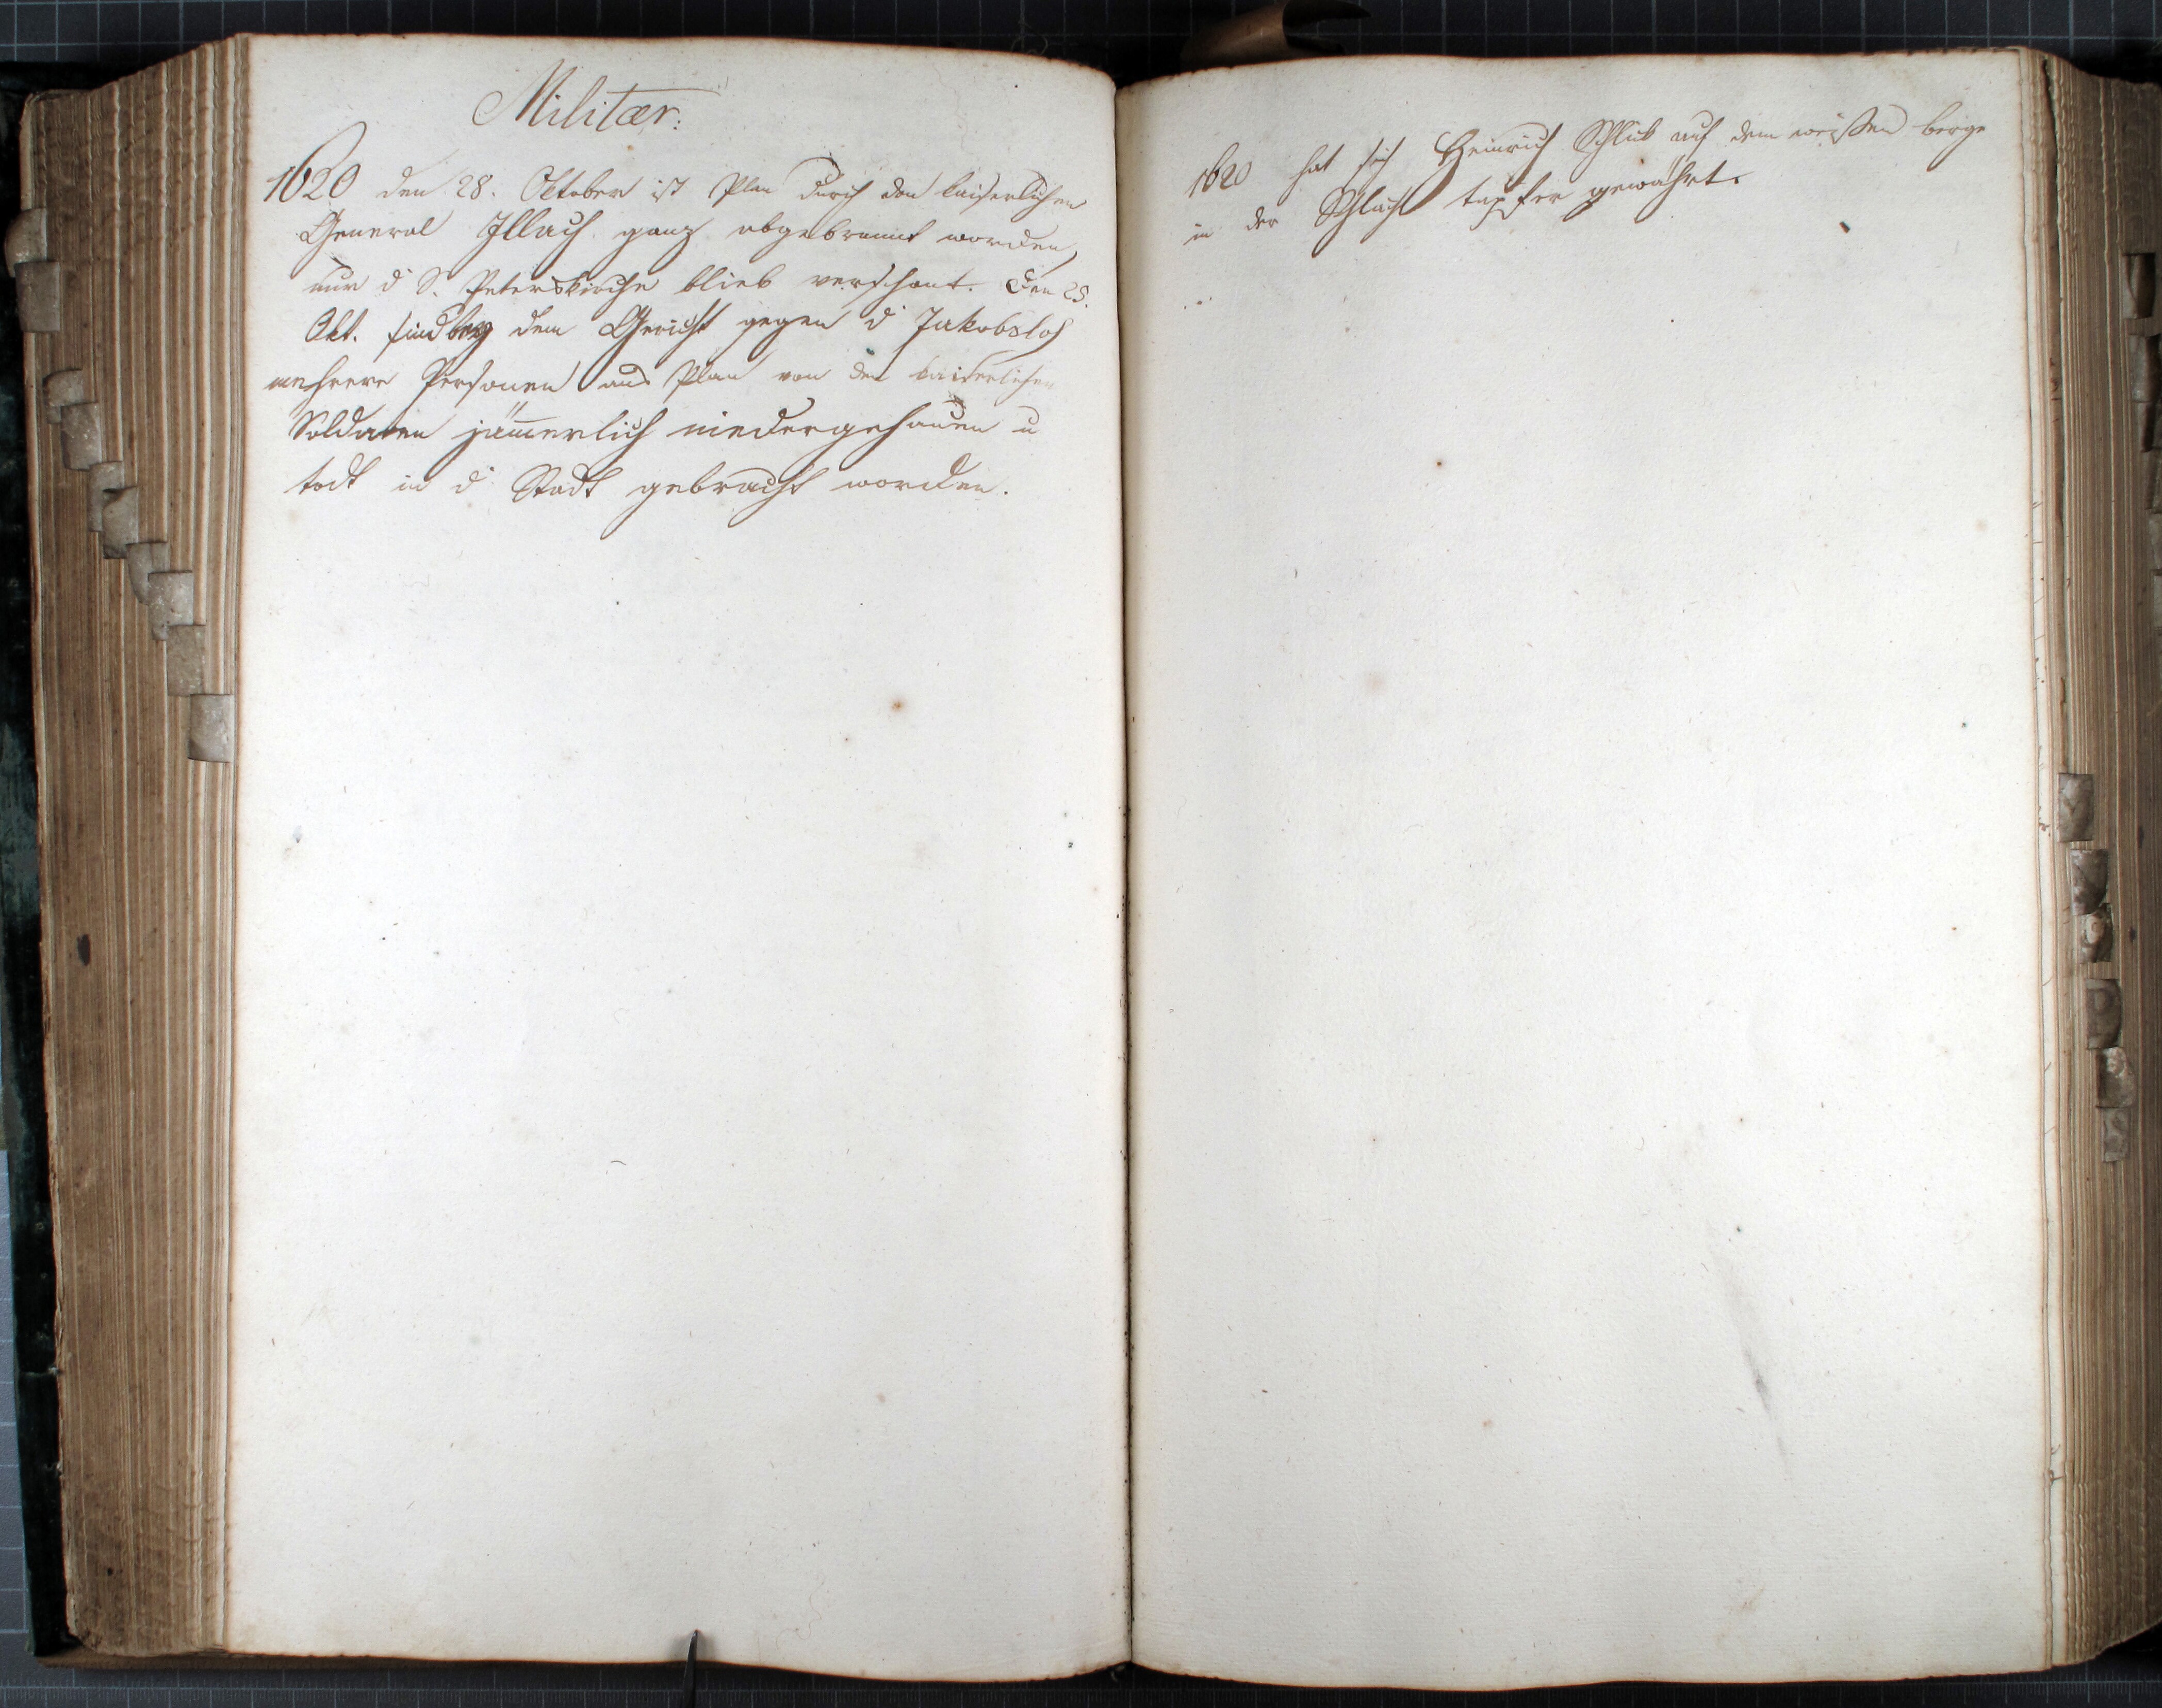 Militær:
1620 den 28. Oktober ist Plan durch den kaiserlichen
General Illach ganz abgebrannt worden,
nur d S. Peterskirche blieb verschont. Den 25.
Okt. sind bey dem Gericht gegen d Jakobsloh
mehrere Personen aus Plan von den kaiserlichen
Soldaten jam̄erlich niedergehauen u
todt in d Stadt gebracht worden.
1620 hat sich Heinrich Schlick auf dem weißen berge
in der Schlacht tapfer gewährt.